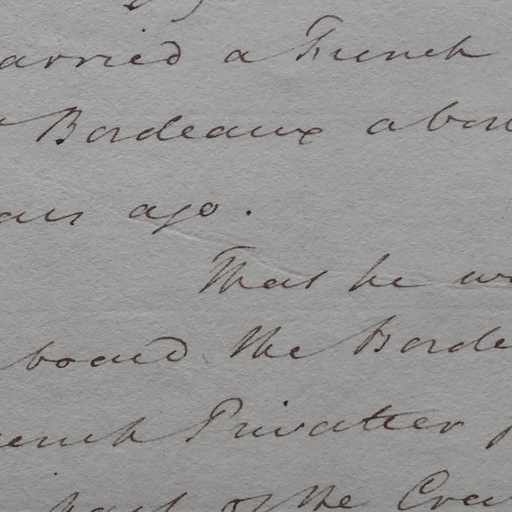 arried a French
Bordeaux abou
ears ago.
That he w
board the Borde
rench Privateer
part of the Crew